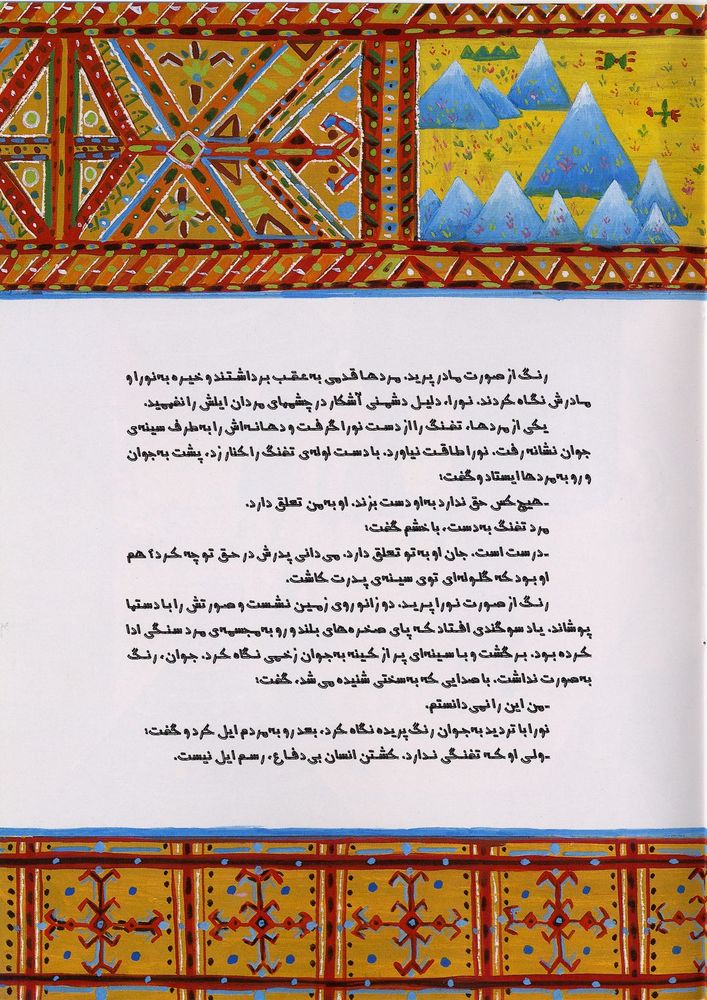 رنگ از صورت مادر پرید. مردها قدمی به عقب برداشتند و خیره به نورا و
مادرش نگاه کردند. نورا، دلیل دشمنی آشکار در چشمهای مردان ایلش را نفهمید.
یکی از مردها، تفنگ را از دست نورا گرفت و دهانه‌اش را به طرف سینه‌ی
جوان نشانه رفت. نورا طاقت نیاورد. با دست لوله‌ی تفنگ را کنار زد، پشت به جوان
و رو به مردها ایستاد و گفت:
-هیچ کس حق ندارد به او دست بزند. او به من تعلق دارد.
مرد تفنگ به دست، با خشم گفت:
-درست است. جان او به تو تعلق دارد. می دانی پدرش در حق تو چه کرد؟ هم
او بود که گلوله‌ای توی سینه‌ی پدرت کاشت.
رنگ از صورت نورا پرید. دو زانو روی زمین نشست و صورتش را با دستها
پوشاند. یاد سوگندی افتاد که پای صخره‌های بلند و رو به مجسمه‌ی مرد سنگی ادا
کرده بود. برگشت و با سینه‌ای پر از کینه به جوان زخمی نگاه کرد. جوان، رنگ
به صورت نداشت. با صدایی که به سختی شنیده می شد، گفت:
-من این را نمی دانستم.
نورا با تردید به جوان رنگ پریده نگاه کرد، بعد رو به مردم ایل کرد و گفت:
-ولی او که تفنگی ندارد. کشتن انسان بی دفاع، رسم ایل نیست.